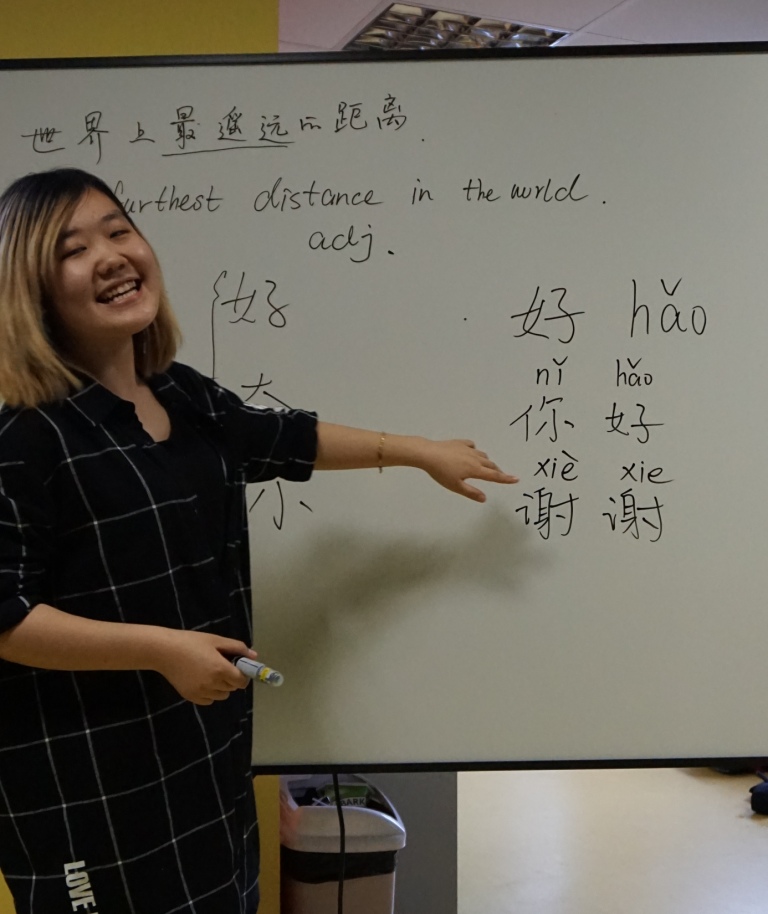 世界上最遥远的距离.
furthest distance in the world.
adj.
好
大
小
好 hǎo
nǐ hǎo
你 好
xiè xie
谢 谢
LOVE